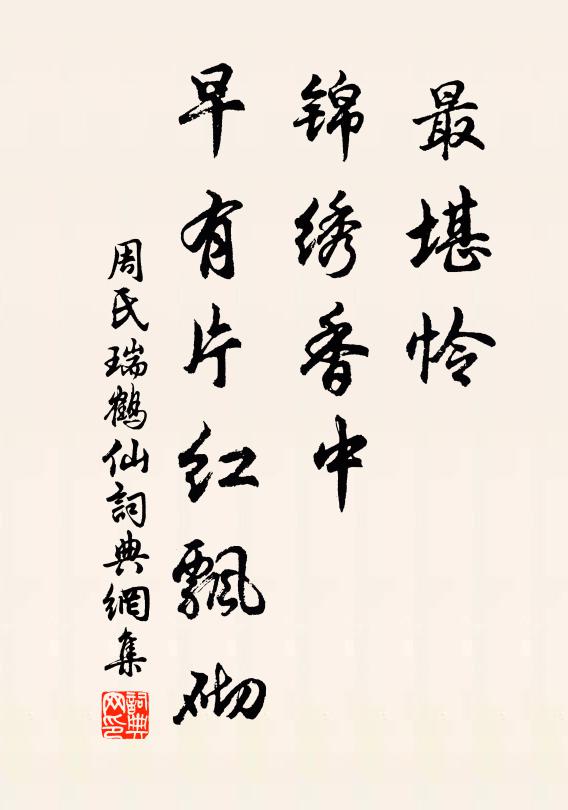 最堪怜
锦绣香中
早有片红飘砌
周氏瑞鹤仙詞典網集
詞典网印